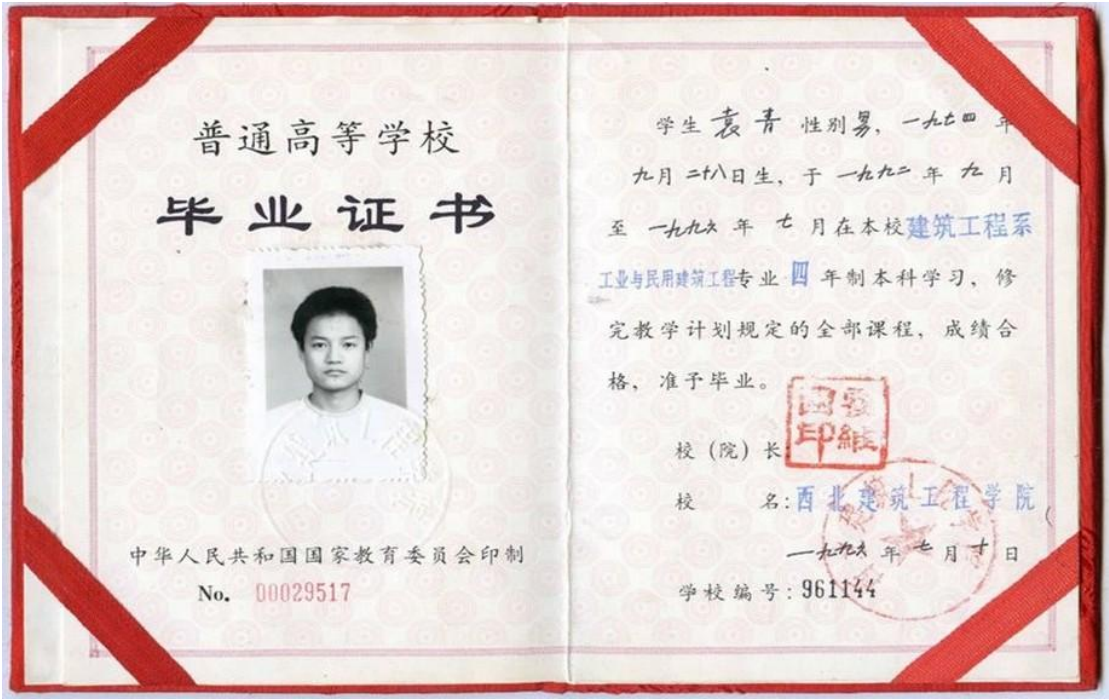 普通高等学校
毕业证书
中华人民共和国国家教育委员会印制
No. 00029517
学生 袁青 性别男, 一九七四 年
九月 二十八日生, 于 一九九二 年 九 月
至 一九九六 年 七 月在本校建筑工程系
工业与民用建筑工程专业 四 年制本科学习, 修
完教学计划规定的全部课程, 成绩合
格, 准予毕业。
校 (院) 长:
校 名: 西北建筑工程学院
一九九六 年 七 月 十 日
学校编号: 961144